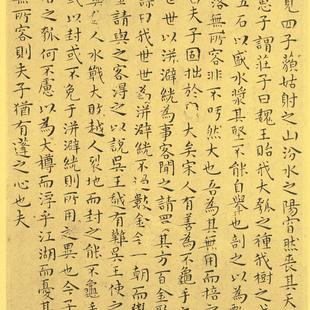 見四子藐姑射之山汾水之陽窅然喪其天
惠子謂莊子曰魏王貽我大瓠之種我樹之
五石以盛水漿其堅不能自舉也剖之以為
落無所容非不呺然大也吾為其無用而掊之
夫子固拙於大矣宋人有善為不龜手
世世以洴澼絖為事客聞之請買其方百金
謀曰我世世為洴澼絖不過數金今一朝而鬻
請與之客得之以說吳王越有難吳王使之
與越人水戰大敗越人裂地而封之能不龜手
或以封或不免於洴澼絖則所用之異也今子
石之瓠何不慮以為大樽而浮乎江湖而憂其
無所容則夫子猶有蓬之心也夫